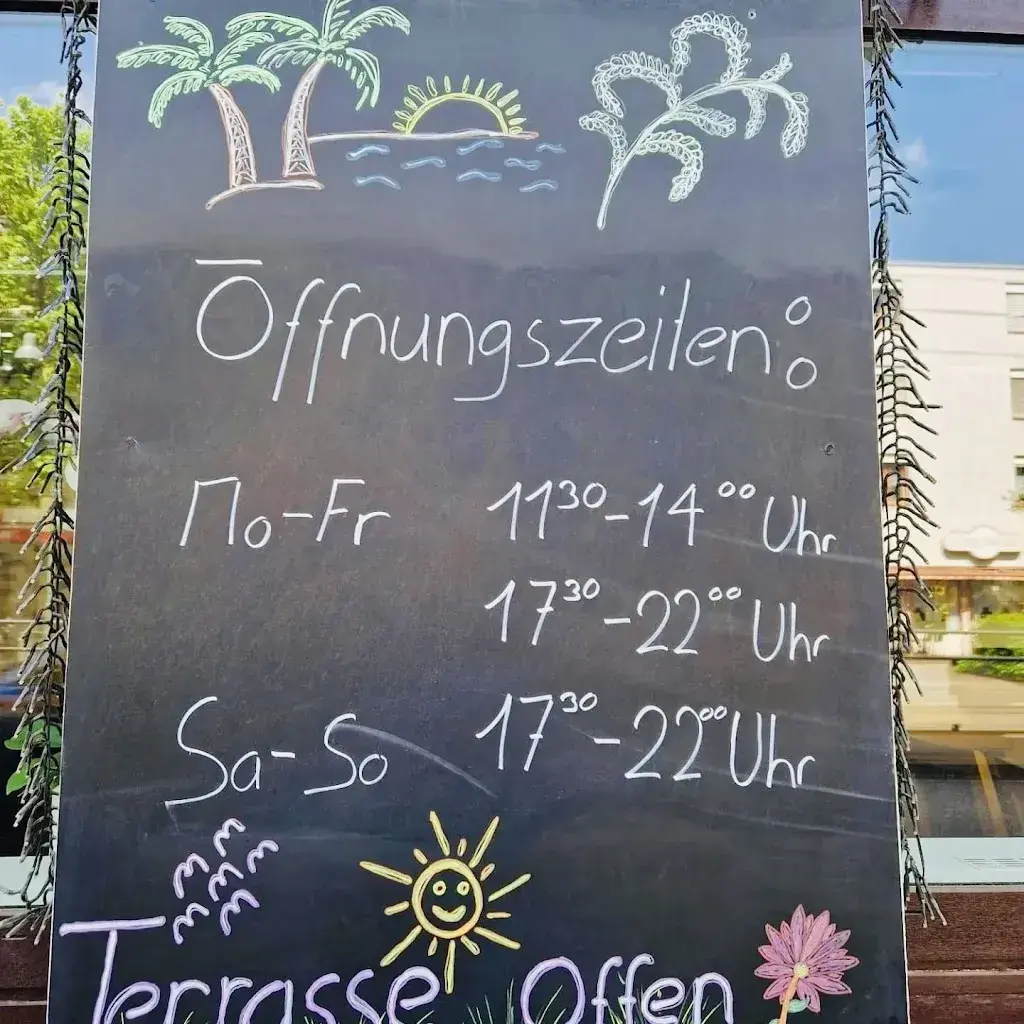 Öffnungszeiten:
Mo-Fr 11³⁰-14⁰⁰ Uhr
17³⁰-22⁰⁰ Uhr
Sa-So 17³⁰-22⁰⁰ Uhr
Terrasse Offen